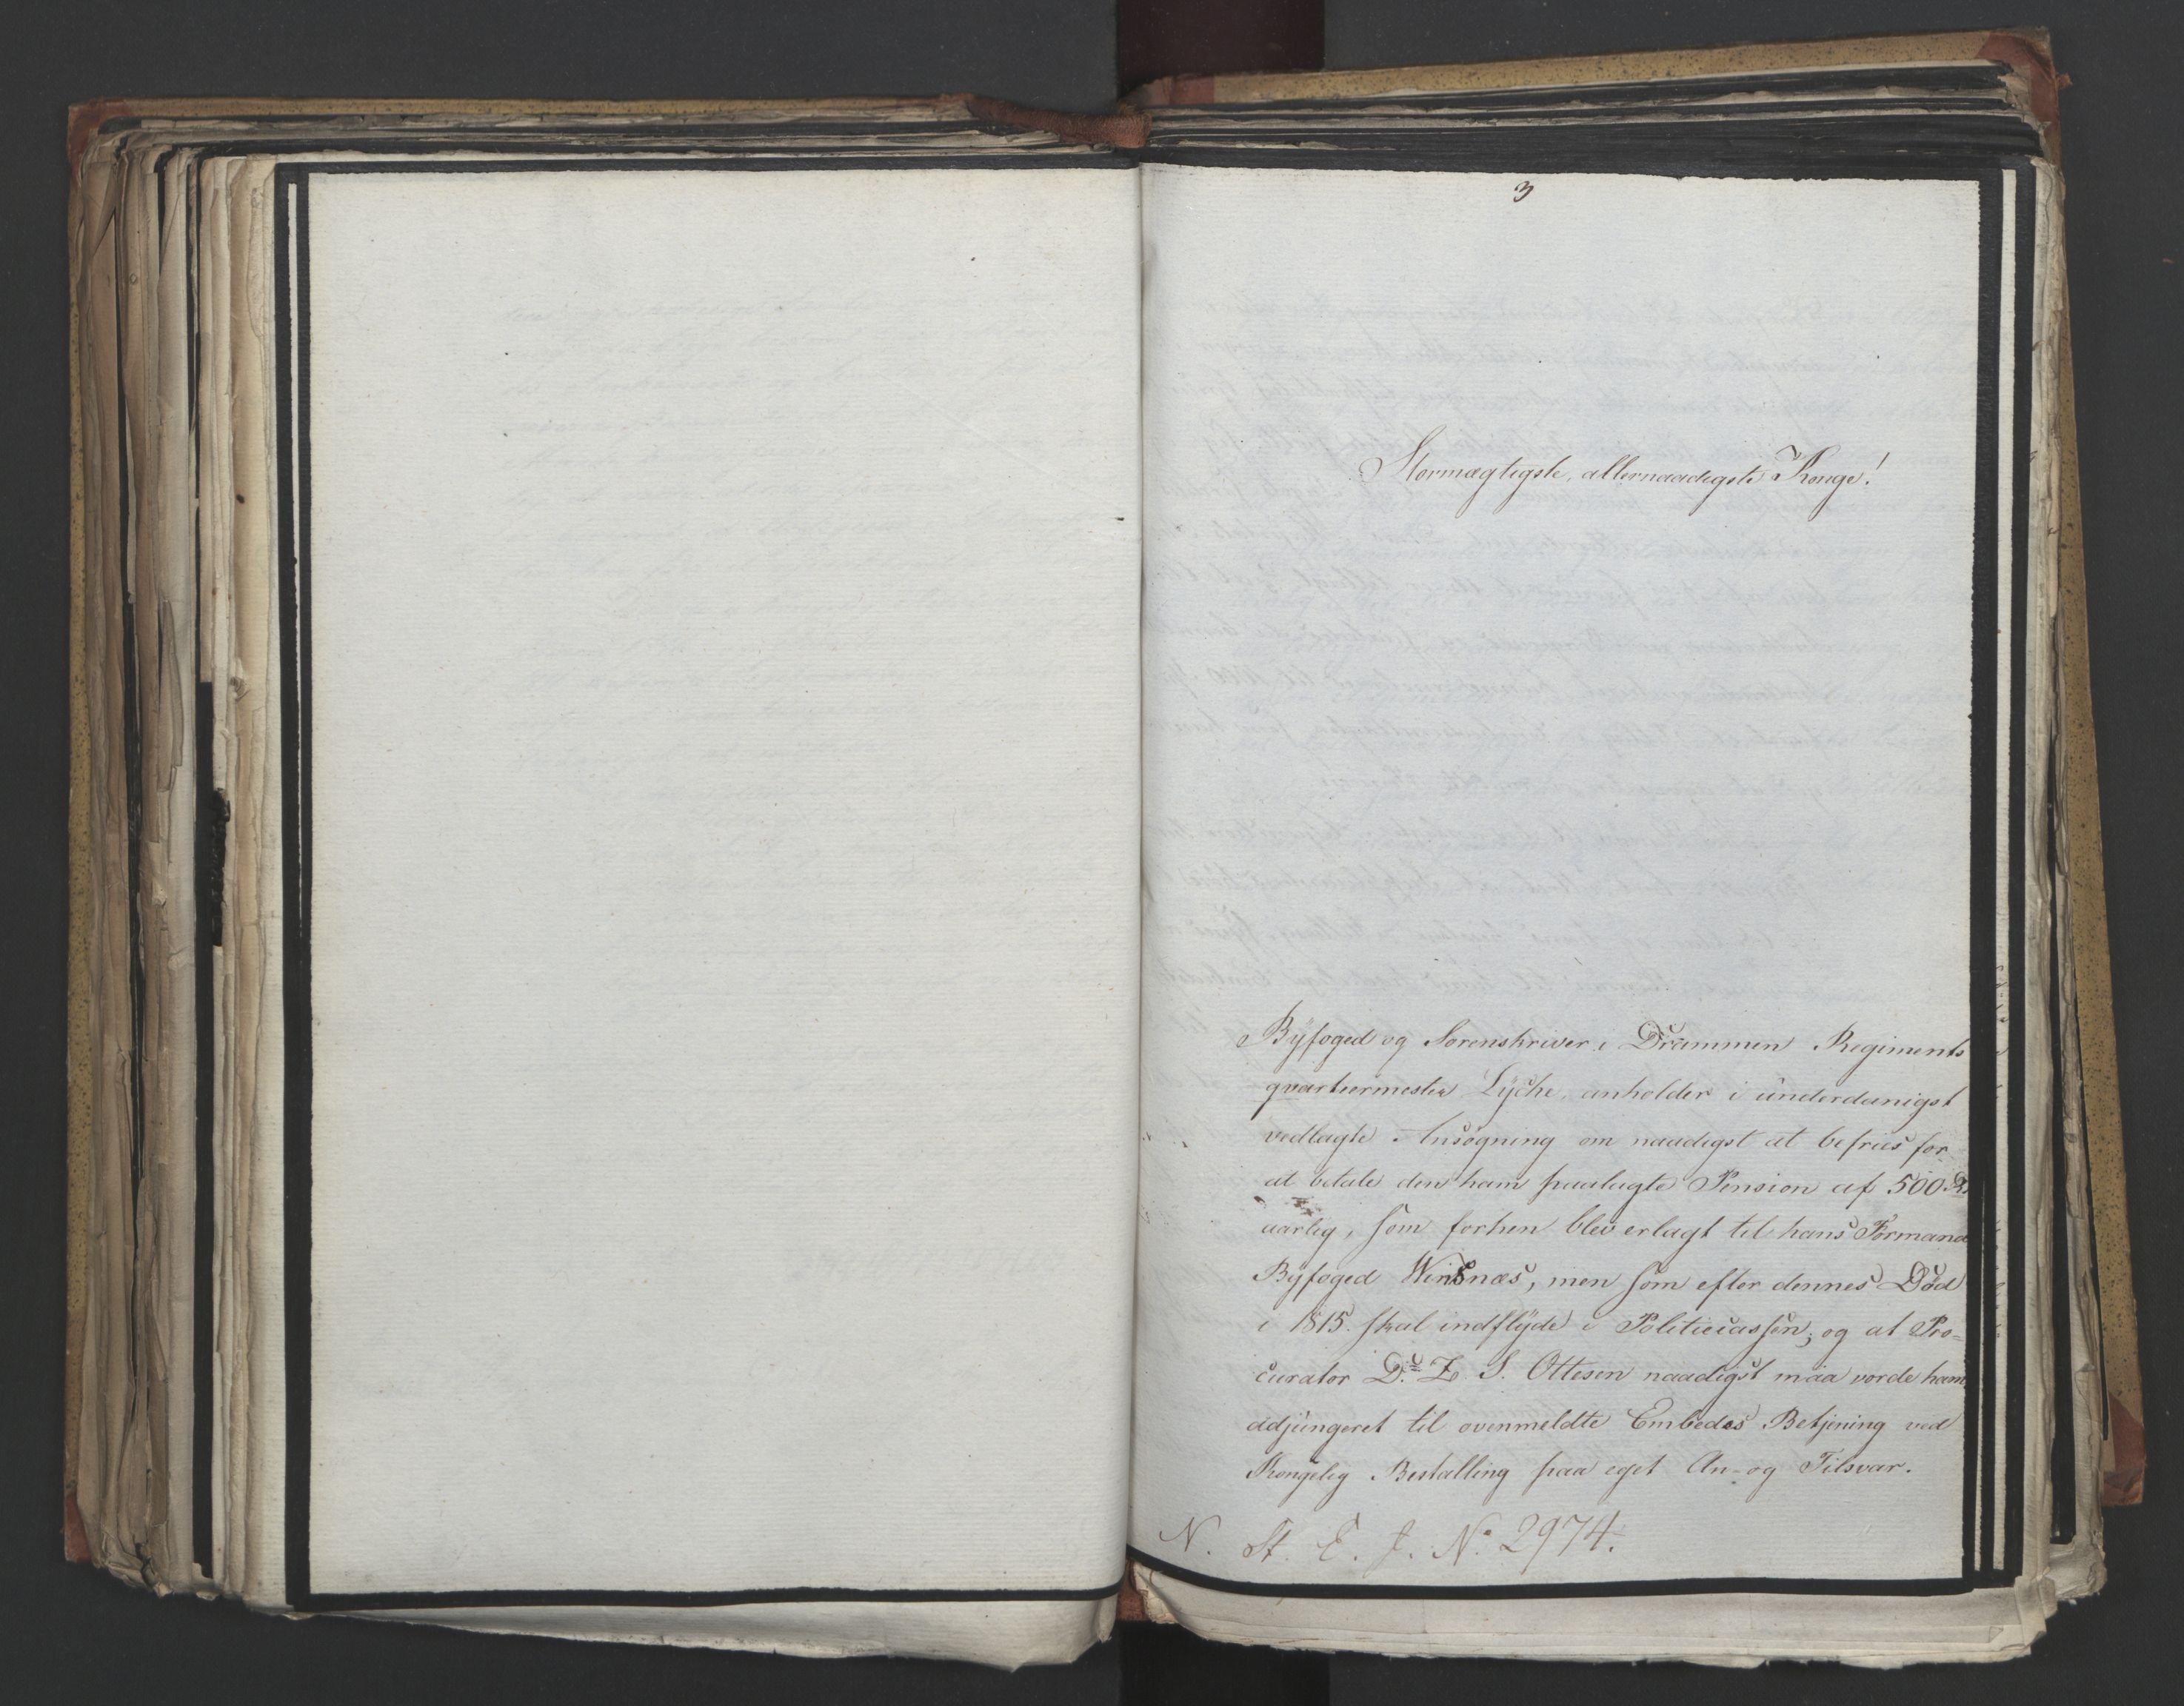 3
Stormægtigste, allernaadigste Konge!
Byfoged og Sorenskriver i Drammen Regiments
qvarteermester Lyche, anholder i underdanigst
vedlagte Ansögning om naadigst at befries for
at betale den ham paalagte Pension af 500 Rd
aarlig, som forhen blev erlagt til hans Formand
Byfoged Winsnæs, men som efter dennes Död
i 1815. skal indflyde i Politiecassen; og at Pro=
curator Dr. Z. S. Ottesen naadigst maa vorde ham
adjungeret til ovenmeldte Embedes Betjening ved
Kongelig Bestalling paa eget An- og Tilsvar.
N. St. E. J. No. 2974.